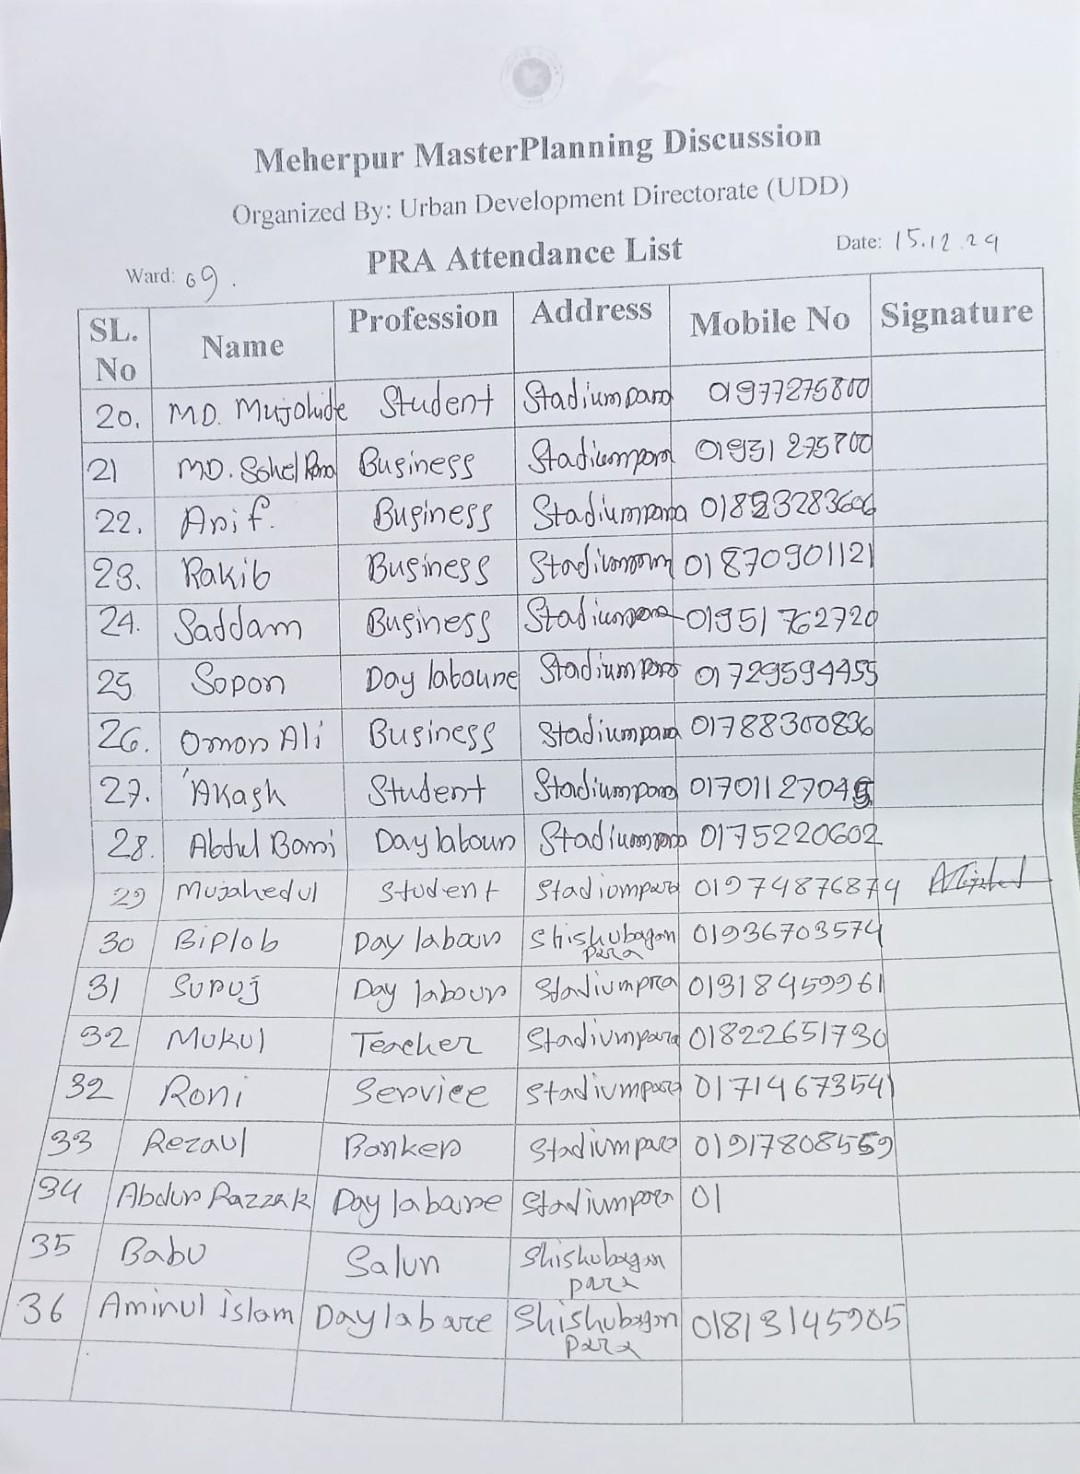 Meherpur MasterPlanning Discussion
Organized By: Urban Development Directorate (UDD)
PRA Attendance List
Ward: 09.
Date: 15.12.24
SL. No Name Profession Address Mobile No Signature
20. MD. Mujahide Student Stadiumpara 01977275800
21 MD. Sohel Rana Business Stadiumpara 01931275700
22. Arif. Business Stadiumpara 01823283606
23. Rakib Business Stadiumpara 01870901121
24. Saddam Business Stadiumpara 01951762720
25 Sopon Day laboure Stadiumpara 01729594455
26. Omor Ali Business Stadiumpara 01788300836
27. Akash Student Stadiumpara 01701127045
28. Abdul Bari Day labour Stadiumpara 0175220602
29 Mujahedul Student Stadiompara 01974876874
30 Biplob Day labour Shishubagan para 01936703574
31 Suruj Day labour Stadiumpra 01318459961
32 Mukul Teacher Stadiumpara 01822651730
32 Roni Service Stadiumpara 01714673541
33 Rezaul Banker Stadiumpara 01917808559
34 Abdur Razzak Day labaure Stadiumpara 01
35 Babu Salun Shishubagan para
36 Aminul islam Day labare Shishubagan para 01813145905